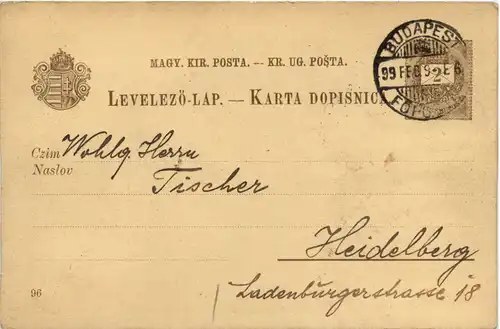 MAGY. KIR. POSTA. — KR. UG. POŠTA.
LEVELEZŐ-LAP. — KARTA DOPISNICA
BUDAPEST
99 FEB 9
FŐPOSTA
2
Czim
Naslov
Wohlg. Herrn
Tischer
Heidelberg
Ladenburgerstrasse 18
96